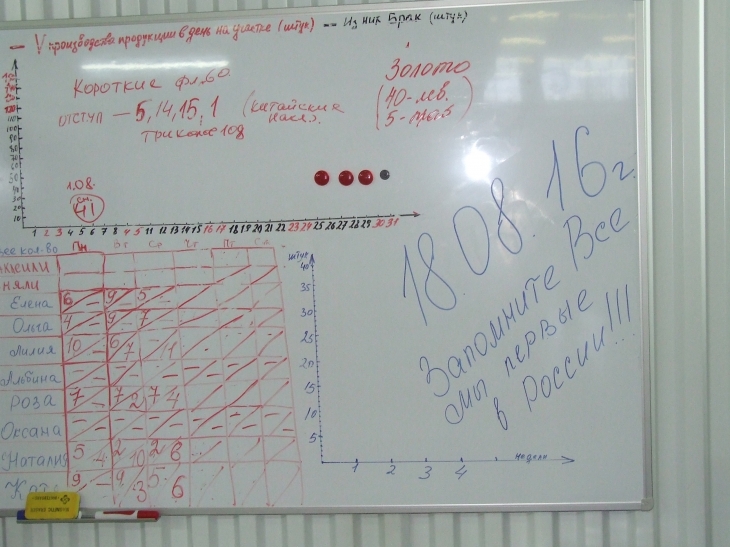 — V производства продукции в день на участке (штук) -- Из них Брак (штук)
Короткие
отступ — 5, 14, 15, 1 (китайские
Золото
(40-лев.
1.08.
41
110
100
90
80
70
60
50
40
30
20
10
1 2 3 4 5 6 7 8 4 5 11 12 13 14 15 16 17 18 19 20 21 22 23 24 25 26 27 28 29 30 31
кол-во Пн Вт Ср Чт Пт Сб
няли
Елена 6 - 9 - 5 -
Ольга 4 - 9 - 7
Лилия 10 - 6 7 - 11
Альбина
Роза 7 - 7 2 7 4
Оксана
Наталия 5 4 2 10 2 6
9 - 9 3 5 6
штук
40
35
30
25
20
15
10
5
1 2 3 4 недели
18.08.16г.
Запомните Все
мы первые
в России!!!